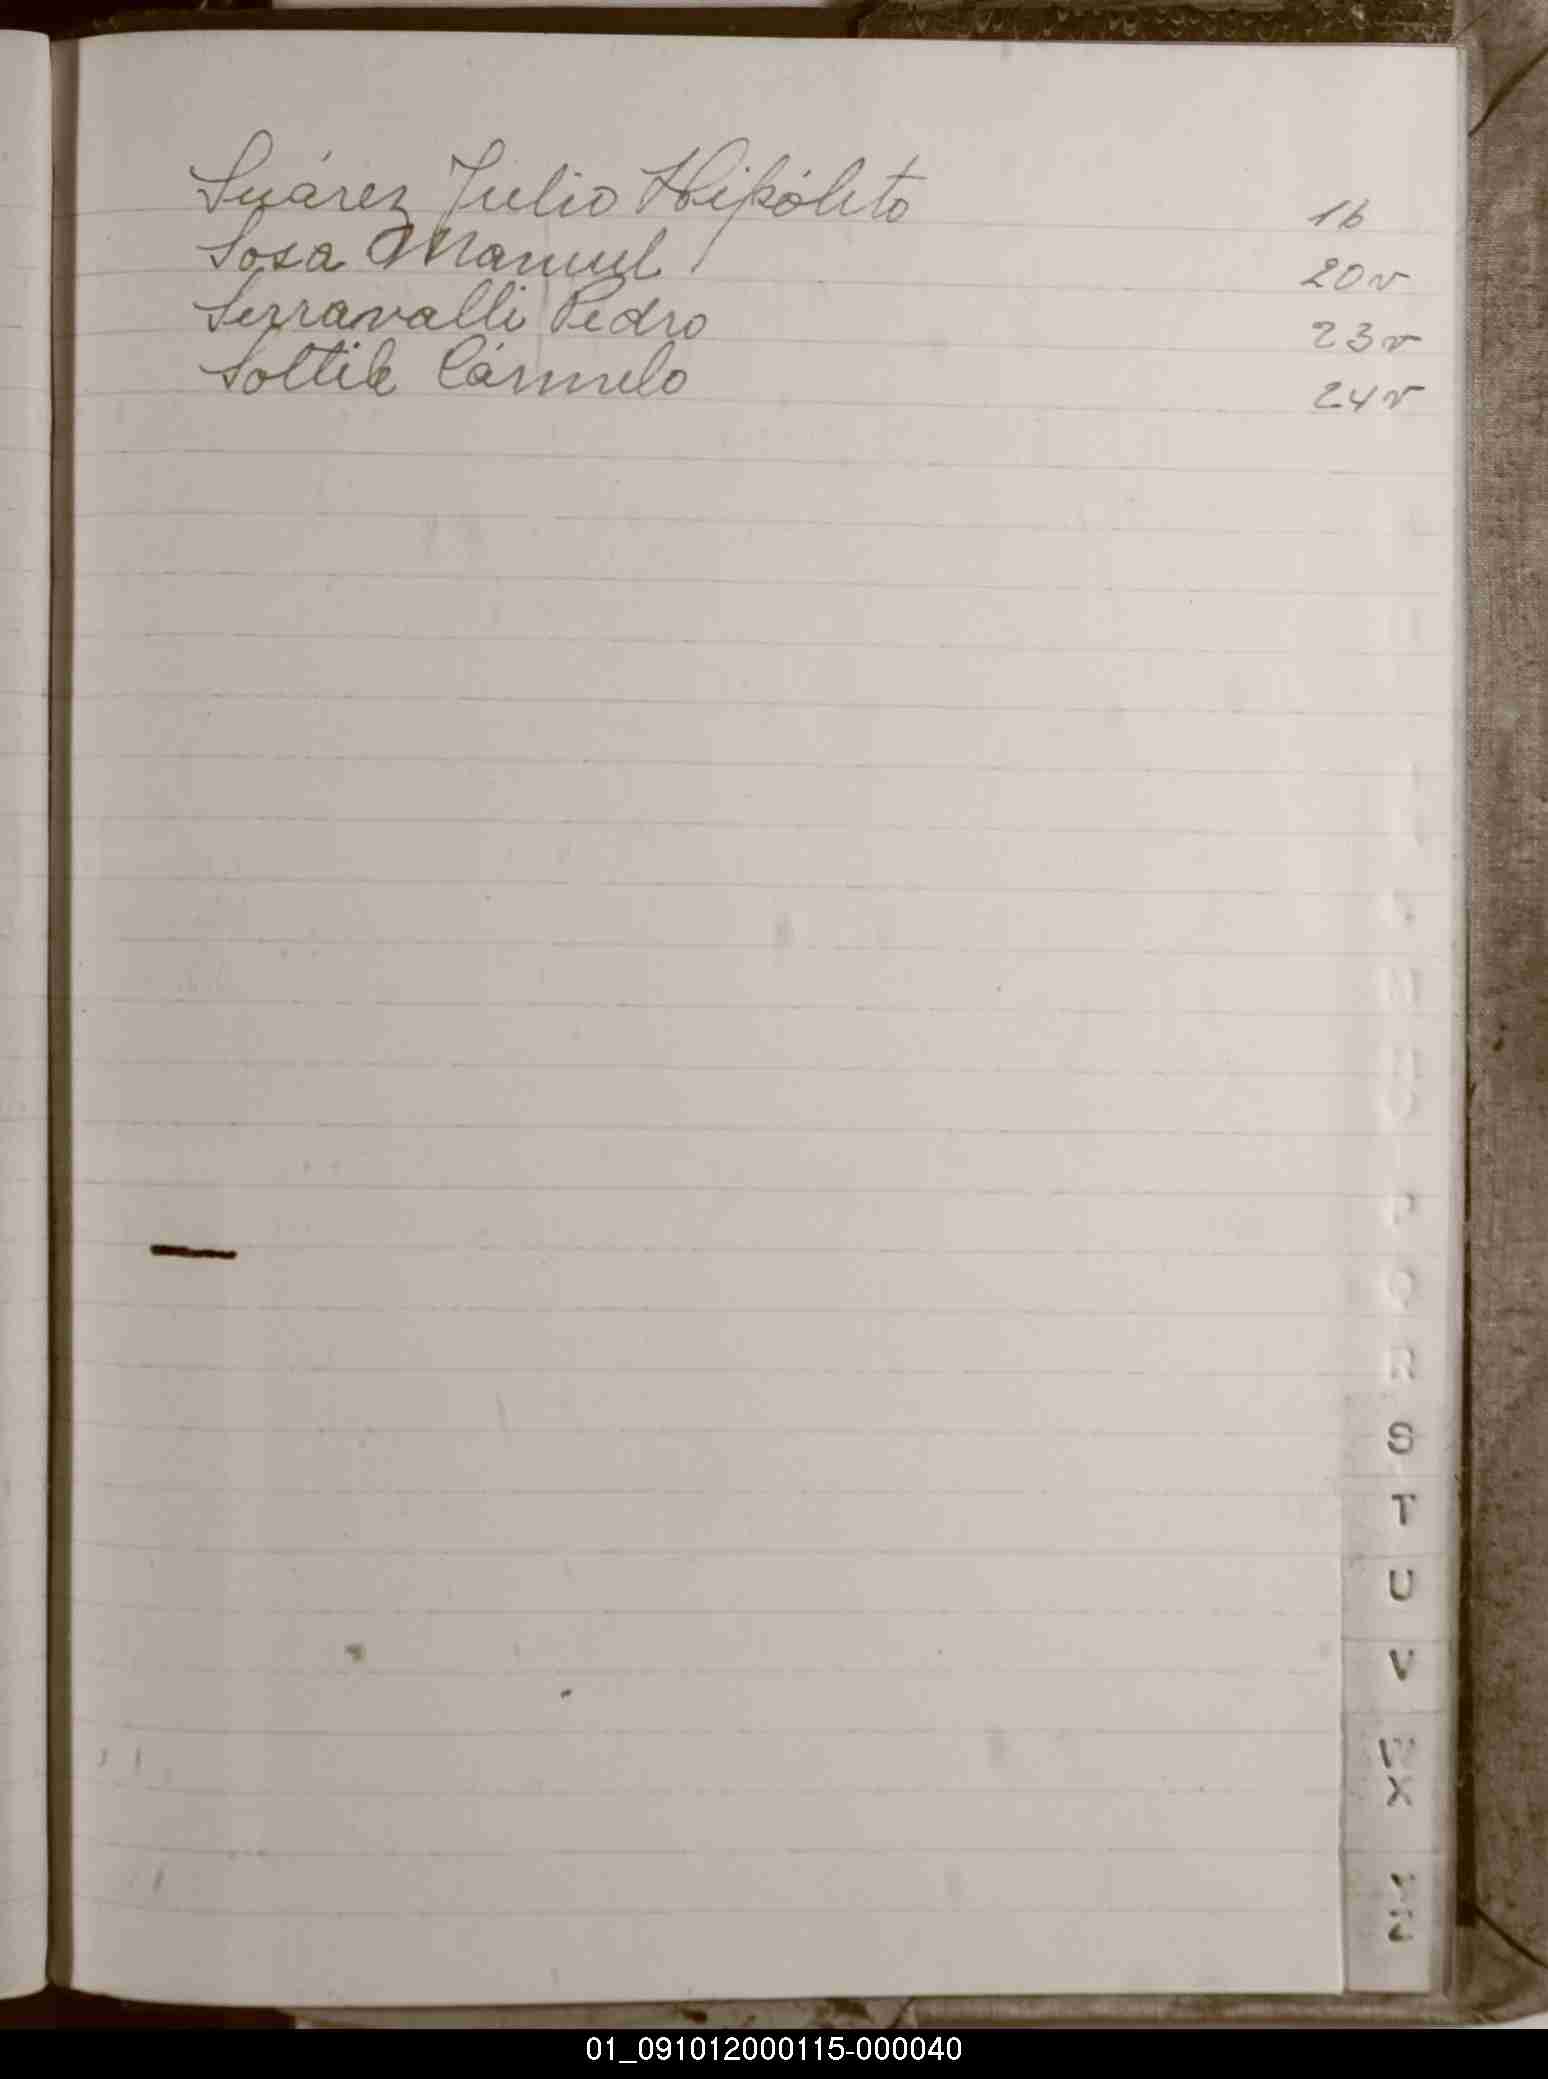 Suárez Julio Hipólito 16
Sosa Manuel 20v
Serravalli Pedro 23v
Sottile Cármelo 24v
P
Q
R
S
T
U
V
W
X
01_091012000115-000040